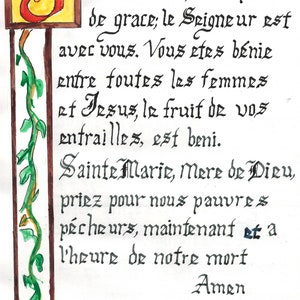 de grace, le Seigneur est
avec vous. Vous etes bénie
entre toutes les femmes
et Jesus, le fruit de vos
entrailles, est beni.
Sainte Marie, Mere de Dieu,
priez pour nous pauvres
pécheurs, maintenant et a
l'heure de notre mort
Amen